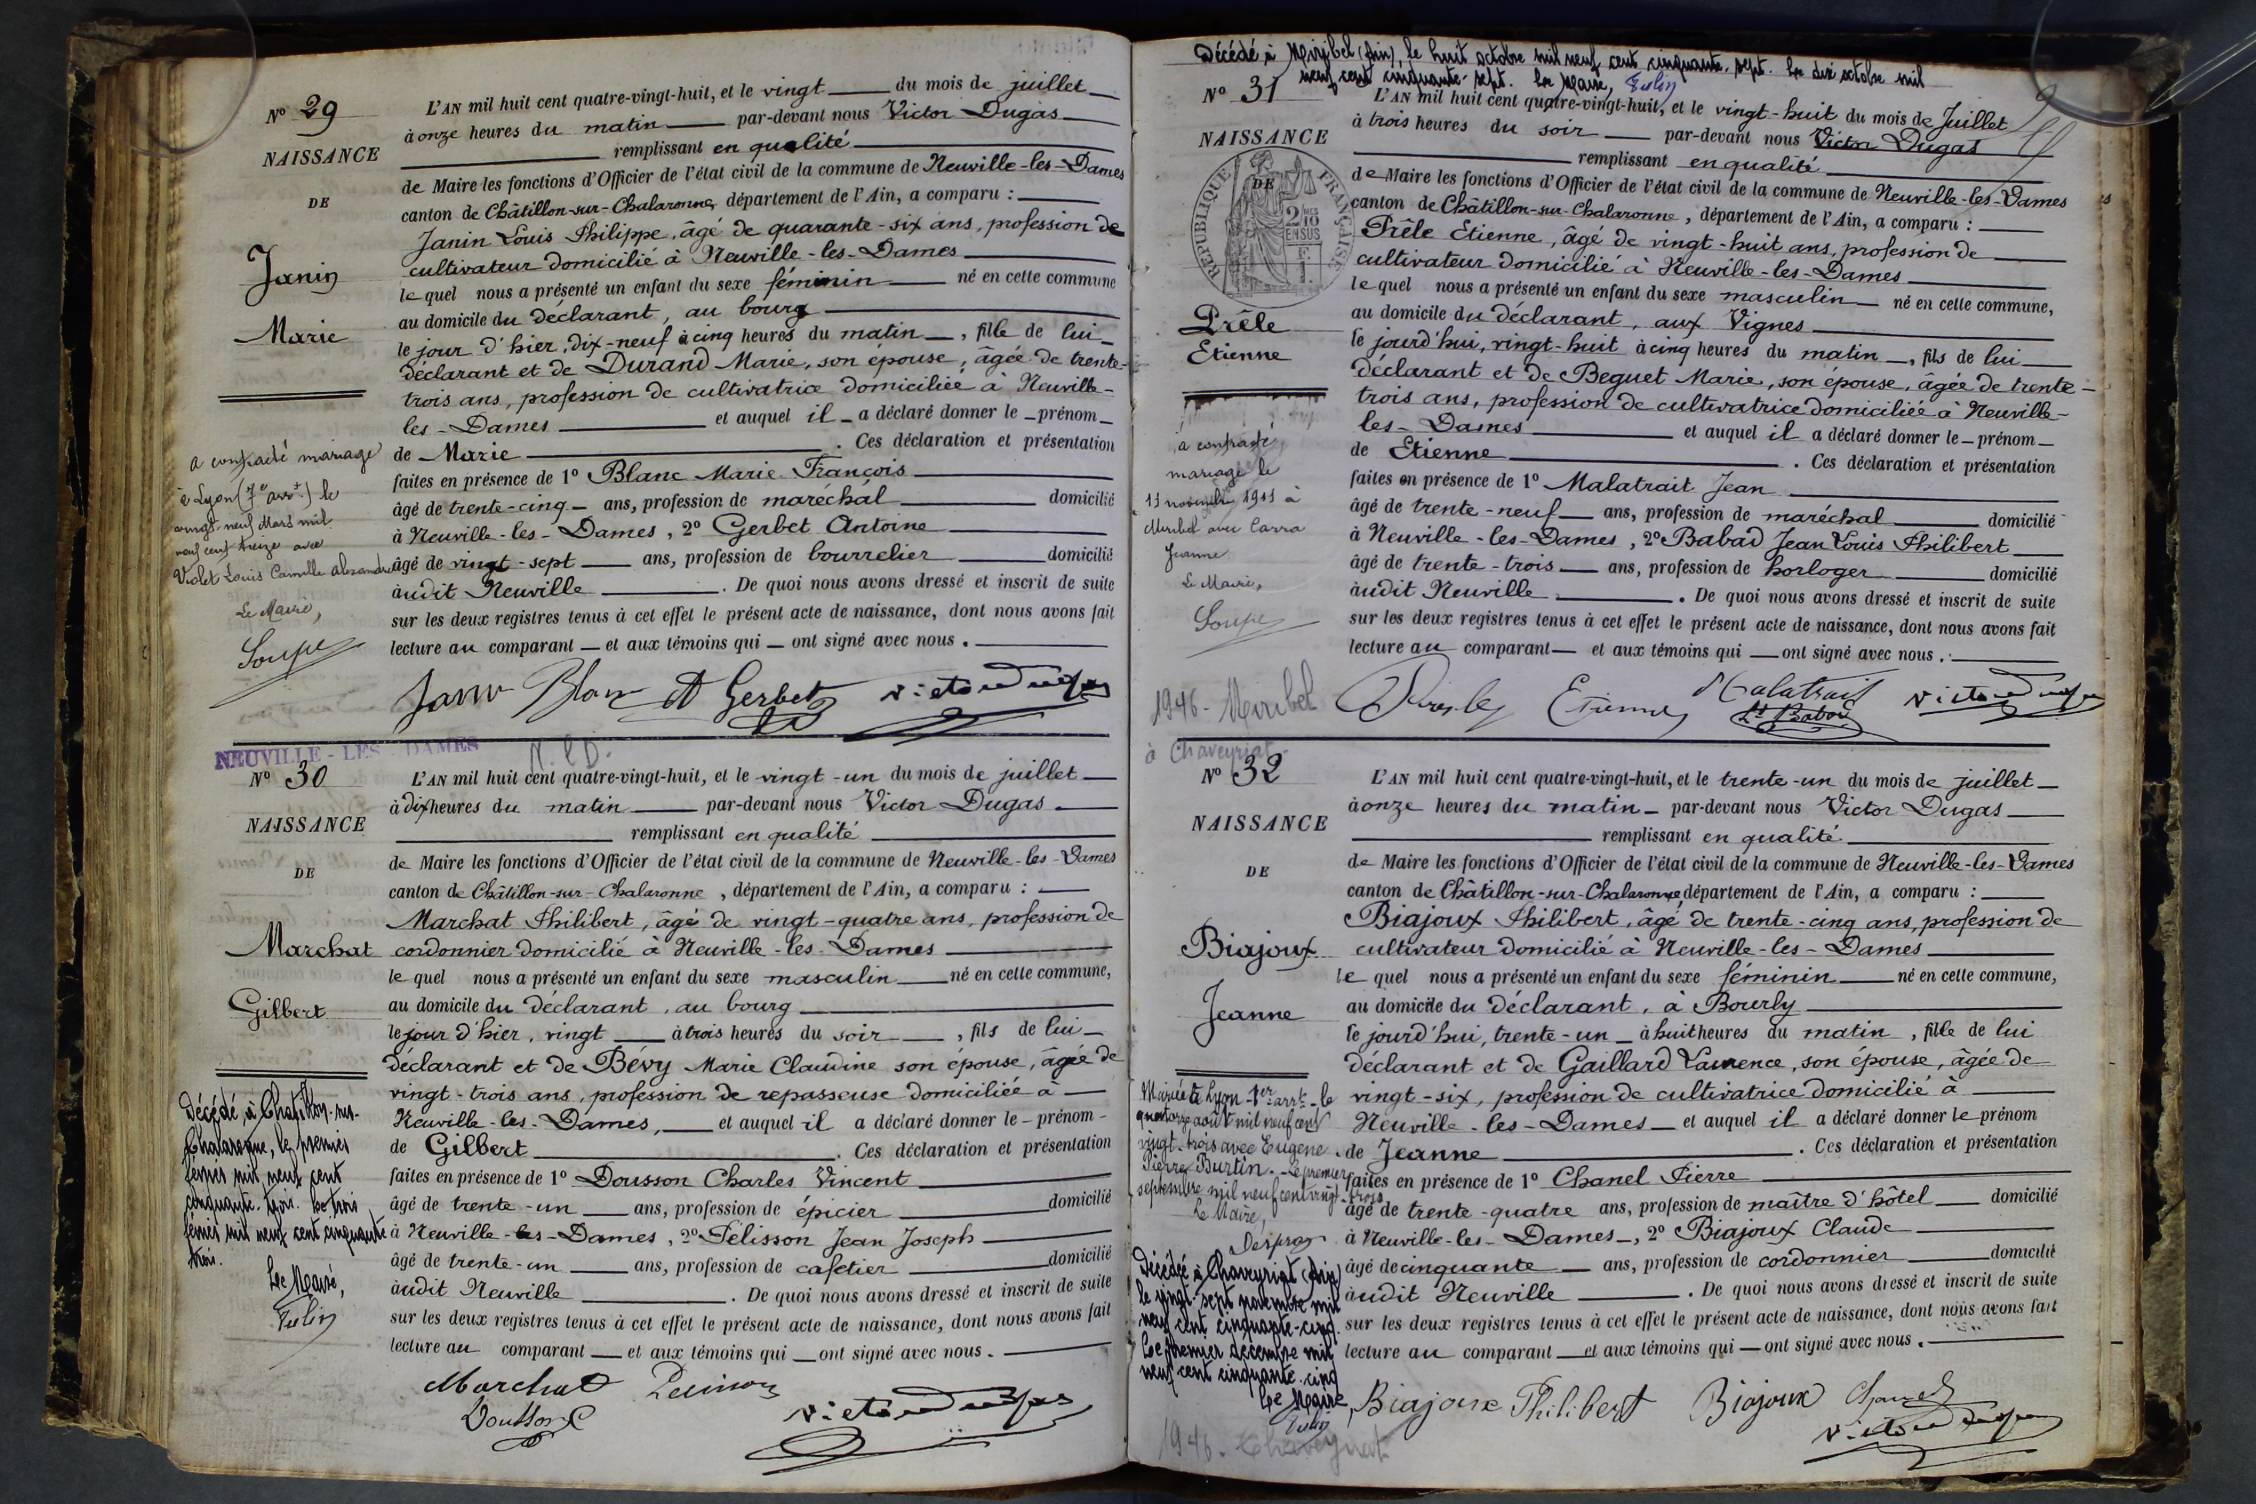 N° 29
NAISSANCE
DE
Janin
Marie
a contracté mariage
à Lyon (7e arrt) le
vingt-neuf Mars mil
neuf cent treize avec
Violet Louis Camille Alexandre
Le Maire,
Soupe
L'AN mil huit cent quatre-vingt-huit, et le vingt du mois de juillet
à onze heures du matin par-devant nous Victor Dugas
remplissant en qualité
de Maire les fonctions d'Officier de l'état civil de la commune de Neuville-les-Dames
canton de Châtillon-sur-Chalaronne, département de l'Ain, a comparu :
Janin Louis Philippe, âgé de quarante-six ans, profession de
cultivateur domicilié à Neuville-les-Dames
lequel nous a présenté un enfant du sexe féminin né en cette commune
au domicile du déclarant, au bourg
le jour d'hier, dix-neuf à cinq heures du matin, fille de lui
déclarant et de Durand Marie, son épouse, âgée de trente-
trois ans, profession de cultivatrice domiciliée à Neuville-
les-Dames et auquel il a déclaré donner le prénom
de Marie. Ces déclaration et présentation
faites en présence de 1° Blanc Marie François
âgé de trente-cinq ans, profession de maréchal domicilié
à Neuville-les-Dames, 2° Gerbet Antoine
âgé de vingt-sept ans, profession de bourrelier domicilié
audit Neuville. De quoi nous avons dressé et inscrit de suite
sur les deux registres tenus à cet effet le présent acte de naissance, dont nous avons fait
lecture au comparant et aux témoins qui ont signé avec nous.
Janin Blanc A Gerbet Victor Dugas
NEUVILLE-LES-DAMES
N.l.D.
N° 30
NAISSANCE
DE
Marchat
Gilbert
Décédé à Chatillon-sur-
Chalaronne, le premier
février mil neuf cent
cinquante-trois. Le trois
février mil neuf cent cinquante
trois.
Le Maire,
L'AN mil huit cent quatre-vingt-huit, et le vingt-un du mois de juillet
à dix heures du matin par-devant nous Victor Dugas
remplissant en qualité
de Maire les fonctions d'Officier de l'état civil de la commune de Neuville-les-Dames
canton de Châtillon-sur-Chalaronne, département de l'Ain, a comparu :
Marchat Philibert, âgé de vingt-quatre ans, profession de
cordonnier domicilié à Neuville-les-Dames
lequel nous a présenté un enfant du sexe masculin né en cette commune,
au domicile du déclarant, au bourg
le jour d'hier, vingt à trois heures du soir, fils de lui
déclarant et de Bévy Marie Claudine son épouse, âgée de
vingt-trois ans, profession de repasseuse domiciliée à
Neuville-les-Dames, et auquel il a déclaré donner le prénom
de Gilbert. Ces déclaration et présentation
faites en présence de 1° Dousson Charles Vincent
âgé de trente-un ans, profession de épicier domicilié
à Neuville-les-Dames, 2° Pélisson Jean Joseph
âgé de trente-un ans, profession de cafetier domicilié
audit Neuville. De quoi nous avons dressé et inscrit de suite
sur les deux registres tenus à cet effet le présent acte de naissance, dont nous avons fait
lecture au comparant et aux témoins qui ont signé avec nous.
Marchat Pelisson
Dousson C Victor Dugas
Décédé à Miribel (Ain), le huit octobre mil neuf cent cinquante-sept. Le dix octobre mil
neuf cent cinquante-sept. Le Maire,
N° 31
NAISSANCE
DE
RÉPUBLIQUE FRANÇAISE
2/10 EN SUS
Prêle
Etienne
a contracté
mariage le
11 novembre 1911 à
Miribel avec Carra
Jeanne
Le Maire,
Soupe
1946 - Miribel
L'AN mil huit cent quatre-vingt-huit, et le vingt-huit du mois de Juillet
à trois heures du soir par-devant nous Victor Dugas
remplissant en qualité
de Maire les fonctions d'Officier de l'état civil de la commune de Neuville-les-Dames
canton de Châtillon-sur-Chalaronne, département de l'Ain, a comparu :
Prêle Etienne, âgé de vingt-huit ans, profession de
cultivateur domicilié à Neuville-les-Dames
lequel nous a présenté un enfant du sexe masculin né en cette commune,
au domicile du déclarant, aux Vignes
le jourd'hui, vingt-huit à cinq heures du matin, fils de lui
déclarant et de Beguet Marie, son épouse, âgée de trente-
trois ans, profession de cultivatrice domiciliée à Neuville-
les-Dames et auquel il a déclaré donner le prénom
de Etienne. Ces déclaration et présentation
faites en présence de 1° Malatrait Jean
âgé de trente-neuf ans, profession de maréchal domicilié
à Neuville-les-Dames, 2° Babad Jean Louis Philibert
âgé de trente-trois ans, profession de horloger domicilié
audit Neuville. De quoi nous avons dressé et inscrit de suite
sur les deux registres tenus à cet effet le présent acte de naissance, dont nous avons fait
lecture au comparant et aux témoins qui ont signé avec nous.
Etienne Malatrait Victor Dugas
Ls Babad
à Chaveyriat
N° 32
NAISSANCE
DE
Biajoux
Jeanne
Mariée à Lyon-1er arrt le
quatorze août mil neuf cent
vingt-trois avec Eugène
Pierre Burtin. Le premier
septembre mil neuf cent vingt-trois
Le Maire,
Décédée à Chaveyriat (Ain)
le vingt-sept novembre mil
neuf cent cinquante-cinq.
Le premier décembre mil
neuf cent cinquante-cinq
Le Maire,
1946. Chaveyriat
L'AN mil huit cent quatre-vingt-huit, et le trente-un du mois de juillet
à onze heures du matin par-devant nous Victor Dugas
remplissant en qualité
de Maire les fonctions d'Officier de l'état civil de la commune de Neuville-les-Dames
canton de Châtillon-sur-Chalaronne, département de l'Ain, a comparu :
Biajoux Philibert, âgé de trente-cinq ans, profession de
cultivateur domicilié à Neuville-les-Dames
lequel nous a présenté un enfant du sexe féminin né en cette commune,
au domicile du déclarant, à Bourly
le jourd'hui, trente-un à huit heures du matin, fille de lui
déclarant et de Gaillard Laurence, son épouse, âgée de
vingt-six, profession de cultivatrice domicilié à
Neuville-les-Dames et auquel il a déclaré donner le prénom
de Jeanne. Ces déclaration et présentation
faites en présence de 1° Chanel Pierre
âgé de trente-quatre ans, profession de maître d'hôtel domicilié
à Neuville-les-Dames, 2° Biajoux Claude
âgé de cinquante ans, profession de cordonnier domicilié
audit Neuville. De quoi nous avons dressé et inscrit de suite
sur les deux registres tenus à cet effet le présent acte de naissance, dont nous avons fait
lecture au comparant et aux témoins qui ont signé avec nous.
Biajoux Philibert Biajoux Chanel
Victor Dugas